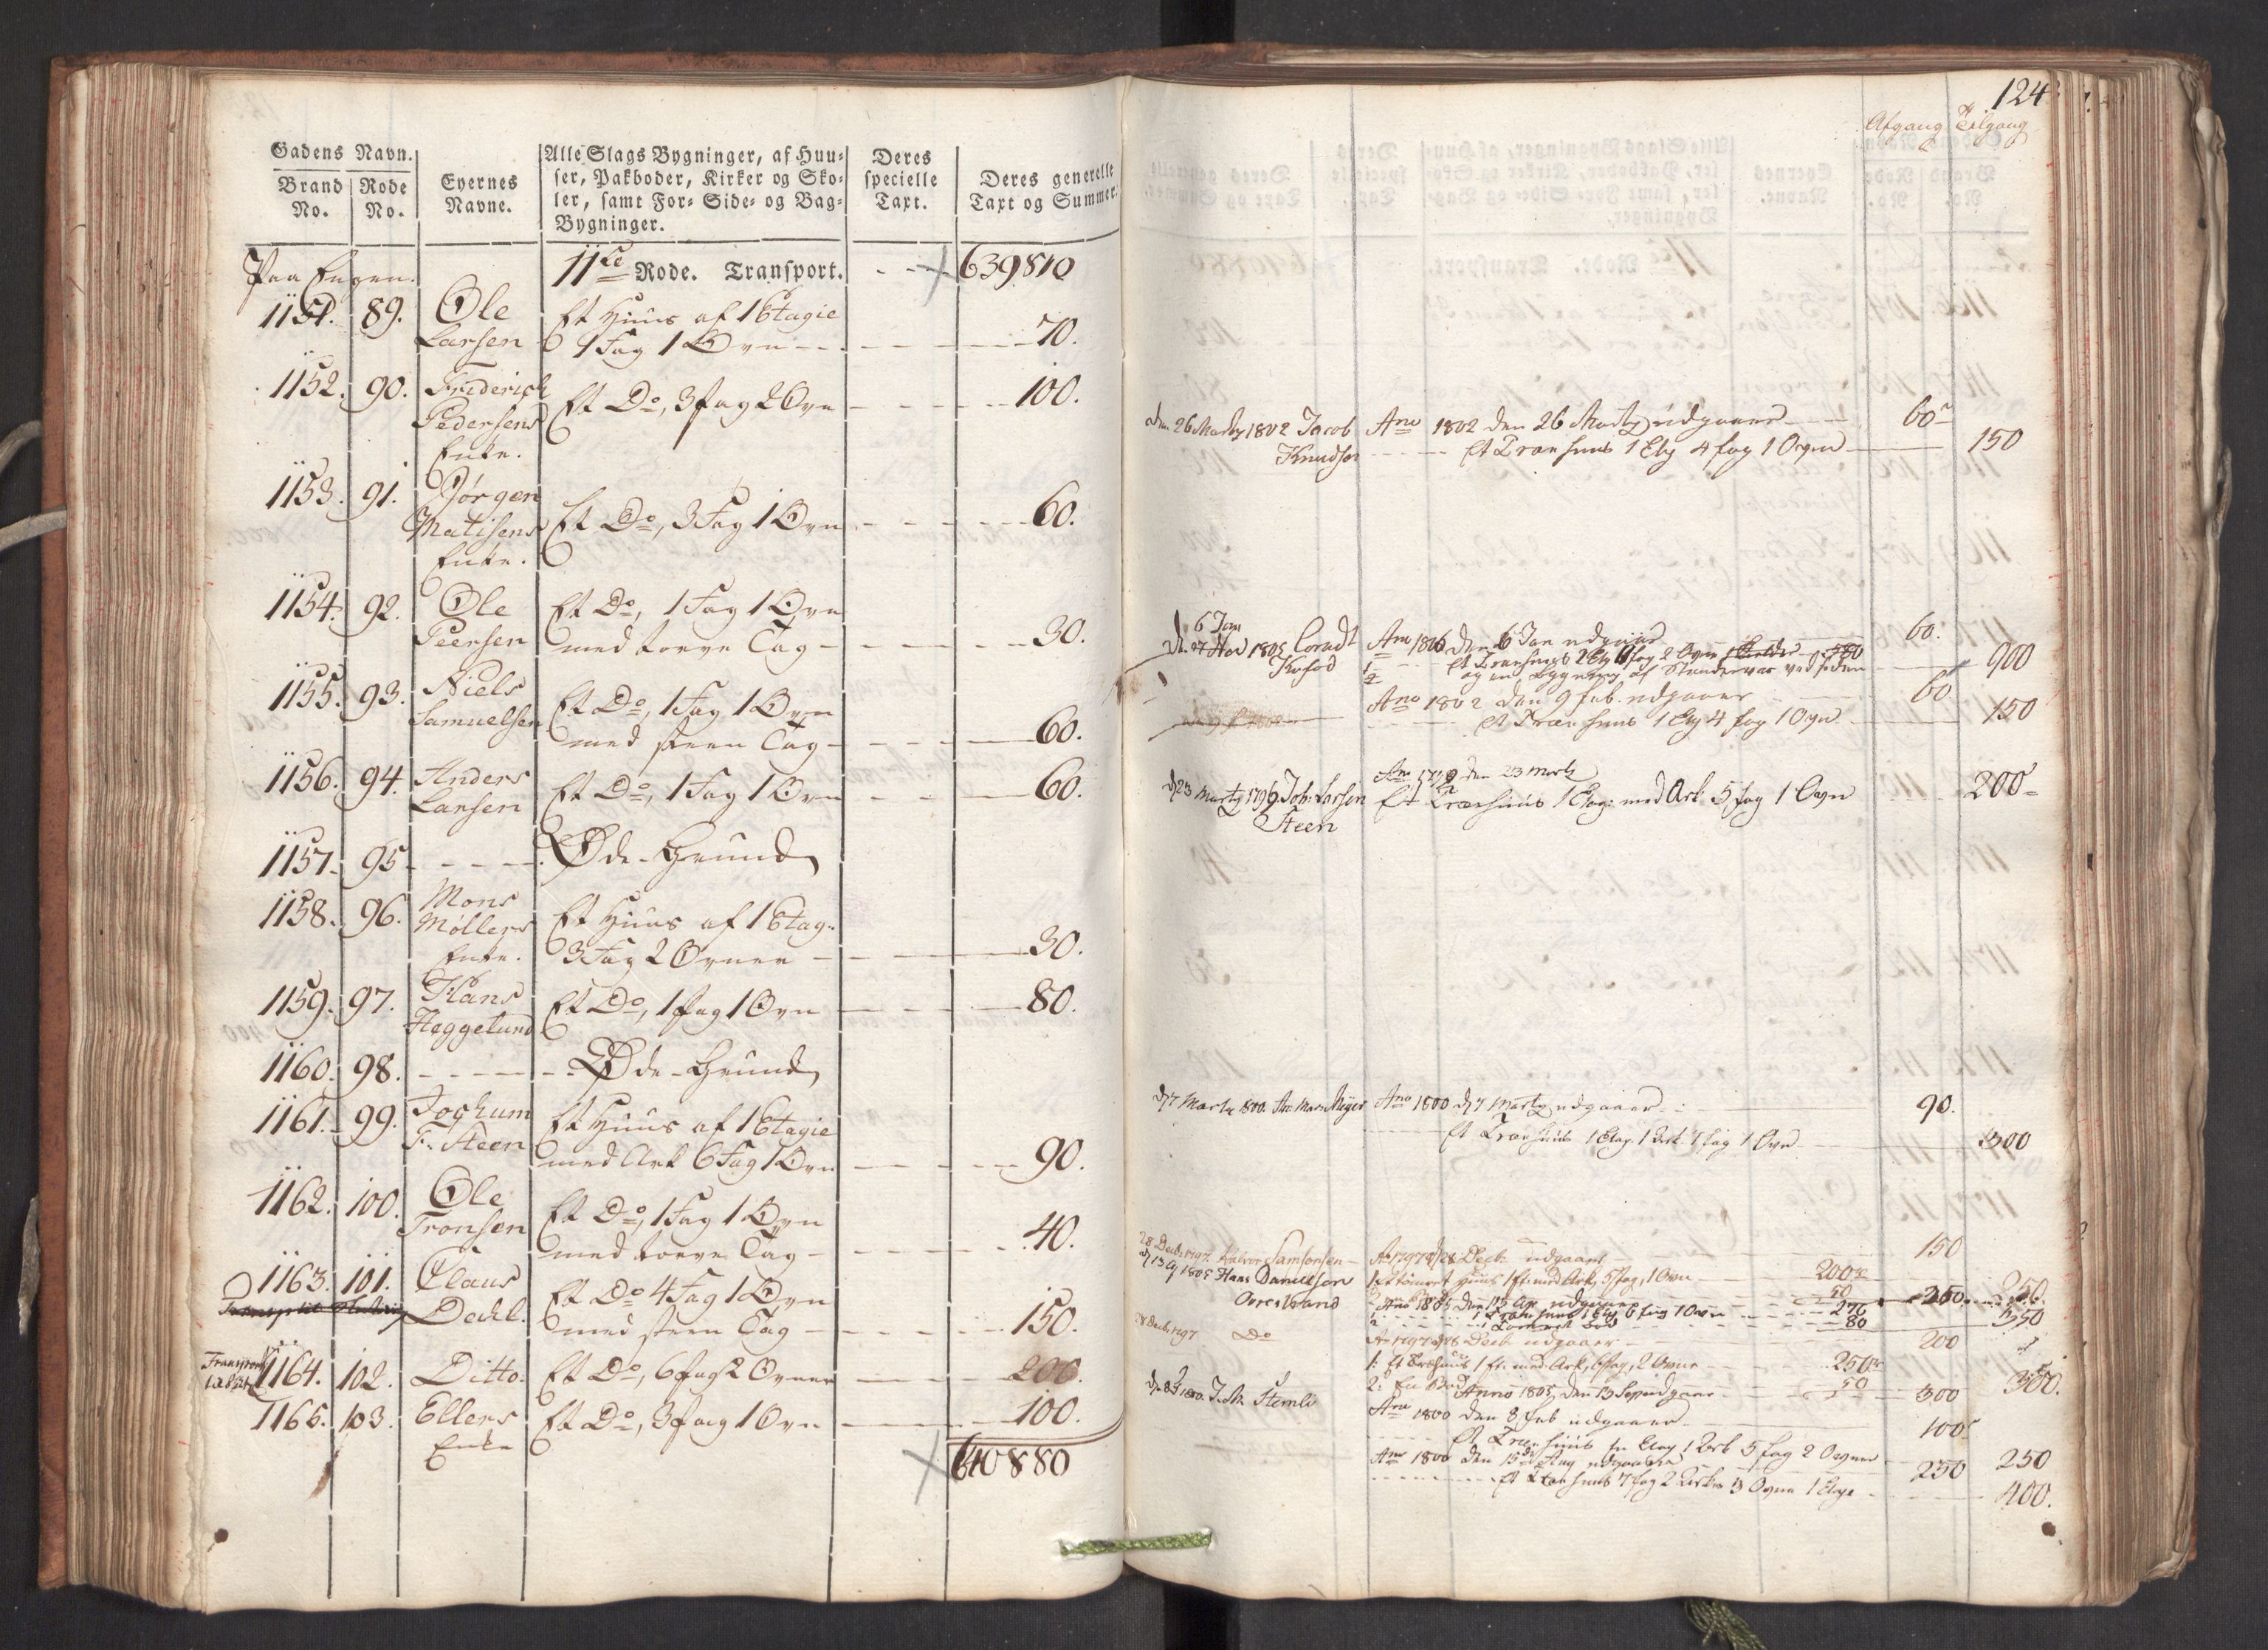 Gadens Navn.
Brand No. | Rode No. | Eyernes Navne. | Alle Slags Bygninger, af Huu-
ser, Pakboder, Kirker og Sko-
ler, samt For- Side- og Bag-
Bygninger. | Deres specielle Taxt. | Deres generelle Taxt og Summer.
Paa Engen. 11te Rode. Transport. 639810
1151. 89. Ole Et Huus af 1 Etagie
Larsen 1 Fag 1 Ovn 70.
1152. 90. Friderich Et Do, 3 fag 2 Ovn 100.
Pedersens
Enke.
1153. 91. Jørgen
Matisens Et Do, 3 Fag 1 Ovn 60.
Enke.
1154. 92. Ole Et Do, 1 Fag 1 Ovn
Peersen med torve Tag 30.
1155. 93. Niels Et Do, 1 Fag 1 Ovn
Samuelsen med steen Tag 60.
1156. 94. Anders Et Do, 1 Fag 1 Ovn 60.
Larsen
1157. 95. Øde-Grund
1158. 96. Mons
Møllers Et Huus af 1 Etag:
Enke. 3 Fag 2 Ovner 30.
1159. 97. Hans Et Do, 1 fag 1 Ovn 80.
Heggelund
1160. 98. Øde-Grund
1161. 99. Jochum Et Huus af 1 Etagie
F: Steen med Ark 6 Fag 1 Ovn 90.
1162. 100. Ole Et Do, 1 Fag 1 Ovn
Tronsen med torve Tag 40.
1163. 101. Claus Et Do 4 Fag 1 Ovn
Dechl. med steen Tag 150.
1164. 102. Ditto. Et Do, 6 fag 2 Ovner 200.
1165. 103. Ellers Et Do, 3 fag 1 Ovn 100.
Enke
640880
124
Afgang Tilgang
den 26 Marty 1802 Jacob Ano 1802 den 26 Marty udgaaer 60
Knudsen Et Træehuus 1 Etg 4 fag 1 Ogn 150
6 Jan
1805 Conradt Ano 1806 den 6 Jan udgaar 60.
og en Bygning af 900
Ano 1802 den 9 feb. udgaaer 60
Et Træe huus 1 Etg 4 fag 1 Ogn 150
Ano 1799 den 23 Marty
d 23 Marty 1799 Joh: Larsen Et Træehuus 1 Etag: med Ark 5 fag 1 Ovn 200
Steen
d 7 Marty 1800 Meyer Ano 1800 d 7 Marty udgaaer 90.
Et Træehuus 1 Etag. 1 Ark 7 fag 1 Ovn 300
28 Decbr 1797. Halvor Samsonsen Ao 1797 d 28 Decbr udgaaer 150
Hans Danielsen 1 Et huus 1 Et: med Ark, 5 fag, 1 Ovn 200
50 250 250.
Ano 1805 den 13 udgaaer 270
80 350
28 Decbr 1797 Do Ao 1797 d 28 Decbr udgaaer 200
1: Et Træhuus 1 Et. med Ark, 6 fag, 2 Ovne 250
2: En Bod 50 300.
Anno 1805 den 13 udgaaer 300
Stemli Ano 1800 den 8 Feb udgaaer 100
Et Træ huus 1 Etag 1 Ark 5 fag 2 Ovner 250
Ano 1800 den 15 Aug udgaaer 250
Et Træhuus 7 fag 2 Arker 3 Ogne 1 Etage 400.